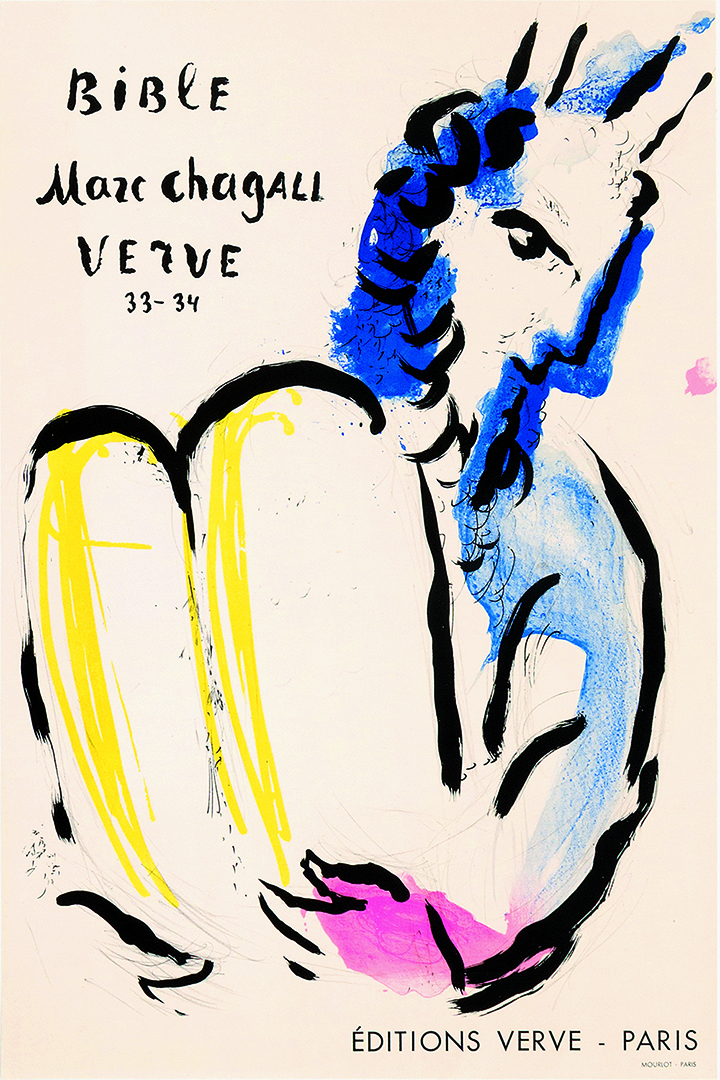 BiBlE
Marc ChagALL
VErVE
33-34
ÉDITIONS VERVE - PARIS
MOURLOT - PARIS